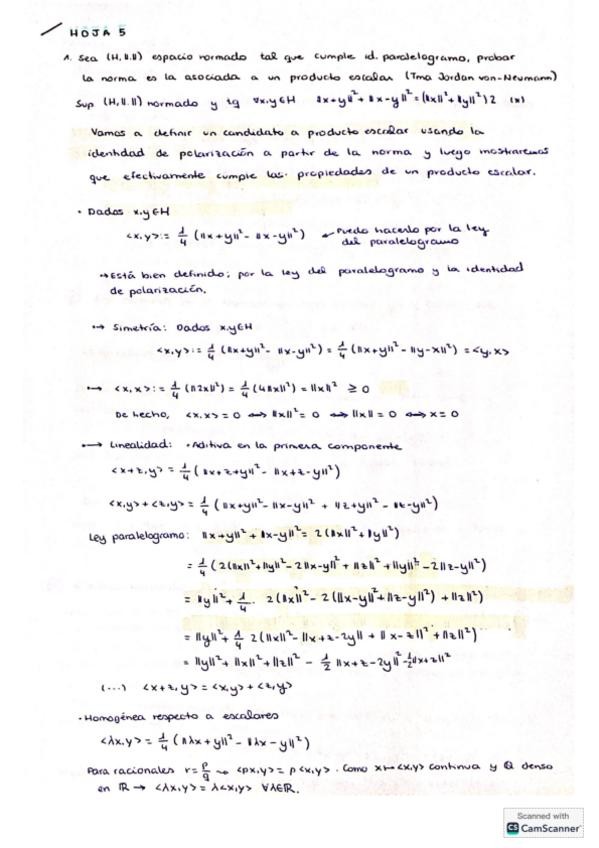 HOJA 5
1. Sea (H, ||.||) espacio normado tal que cumple id. paralelogramo, probar
la norma es la asociada a un producto escalar (Tma Jordan von-Neumann)
Sup (H, ||.||) normado y tq ∀x,y∈H ||x+y||² + ||x-y||² = (||x||² + ||y||²) 2 (*)
Vamos a definir un candidato a producto escalar usando la
identidad de polarización a partir de la norma y luego mostraremos
que efectivamente cumple las propiedades de un producto escalar.
• Dados x,y∈H
<x,y> := 1/4 (||x+y||² - ||x-y||²) ← Puedo hacerlo por la ley
del paralelogramo
→ Está bien definido; por la ley del paralelogramo y la identidad
de polarización.
→ Simetría: Dados x,y∈H
<x,y> := 1/4 (||x+y||² - ||x-y||²) = 1/4 (||x+y||² - ||y-x||²) = <y,x>
→ <x,x> := 1/4 (||2x||²) = 1/4 (4||x||²) = ||x||² ≥ 0
De hecho, <x,x> = 0 ⟺ ||x||² = 0 ⟺ ||x|| = 0 ⟺ x = 0
→ Linealidad: • Aditiva en la primera componente
<x+z,y> = 1/4 (||x+z+y||² - ||x+z-y||²)
<x,y> + <z,y> = 1/4 (||x+y||² - ||x-y||² + ||z+y||² - ||z-y||²)
Ley paralelogramo: ||x+y||² + ||x-y||² = 2(||x||² + ||y||²)
= 1/4 (2(||x||² + ||y||² - 2||x-y||² + ||z||² + ||y||² - 2||z-y||²)
= ||y||² + 1/4 · 2(||x||² - 2(||x-y||² + ||z-y||²) + ||z||²)
= ||y||² + 1/4 2(||x||² - ||x+z-2y|| + ||x-z||² + ||z||²)
= ||y||² + ||x||² + ||z||² - 1/2 ||x+z-2y||² - 1/2 ||x+z||²
(...) <x+z,y> = <x,y> + <z,y>
• Homogénea respecto a escalares
<λx,y> = 1/4 (||λx+y||² - ||λx-y||²)
Para racionales r = p/q → <px,y> = p<x,y>. Como x↦<x,y> continua y Q denso
en ℝ → <λx,y> = λ<x,y> ∀λ∈ℝ.
Scanned with
CS CamScanner